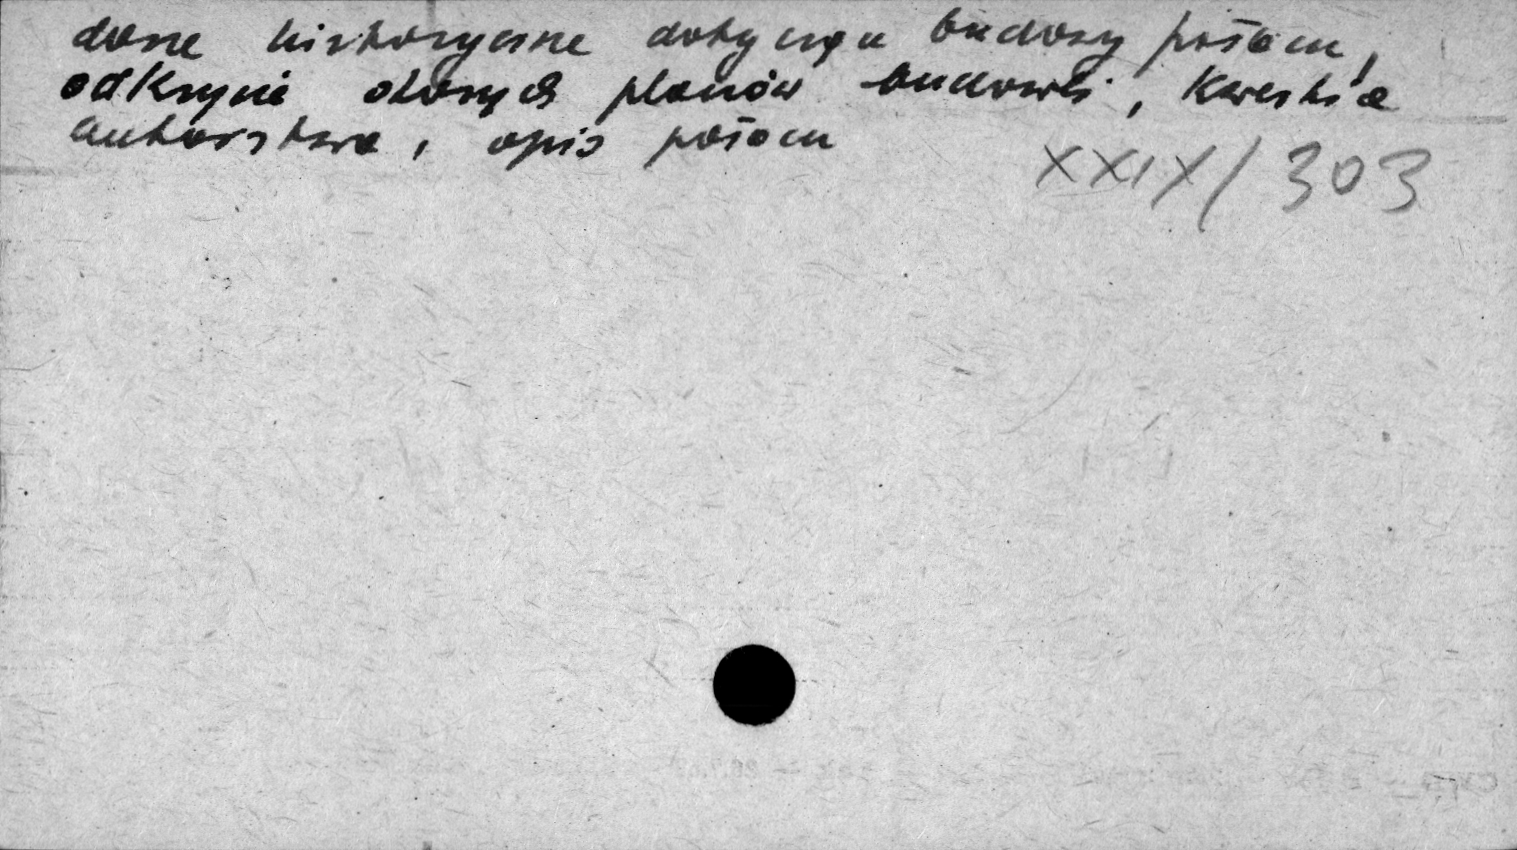 dane historyczne dotyczące budowy pałacu,
odkrycie starych planów budowli, kwestia
autorstwa, opis pałacu
XXIX/303